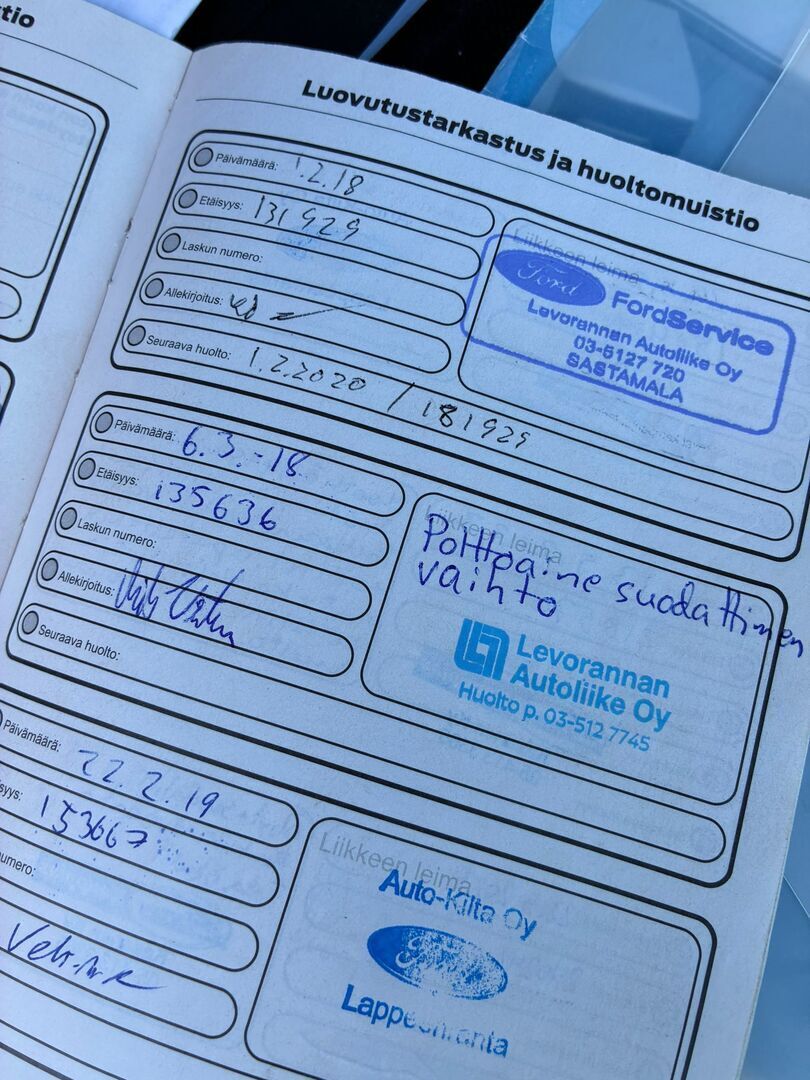 tio
Luovutustarkastus ja huoltomuistio
Päivämäärä: 1.2.18
Etäisyys: 131929
Laskun numero:
Allekirjoitus:
Seuraava huolto: 1.2.2020 / 181929
Liikkeen leima
Ford FordService
Levorannan Autoliike Oy
03-5127 720
SASTAMALA
Päivämäärä: 6.3.-18
Etäisyys: 135636
Laskun numero:
Allekirjoitus:
Seuraava huolto:
Liikkeen leima
Polttoaine suodattimen
vaihto
Levorannan
Autoliike Oy
Huolto p. 03-512 7745
Päivämäärä: 22.2.19
isyys: 153667
numero:
Liikkeen leima
Auto-Kilta Oy
Ford
Lappeenranta